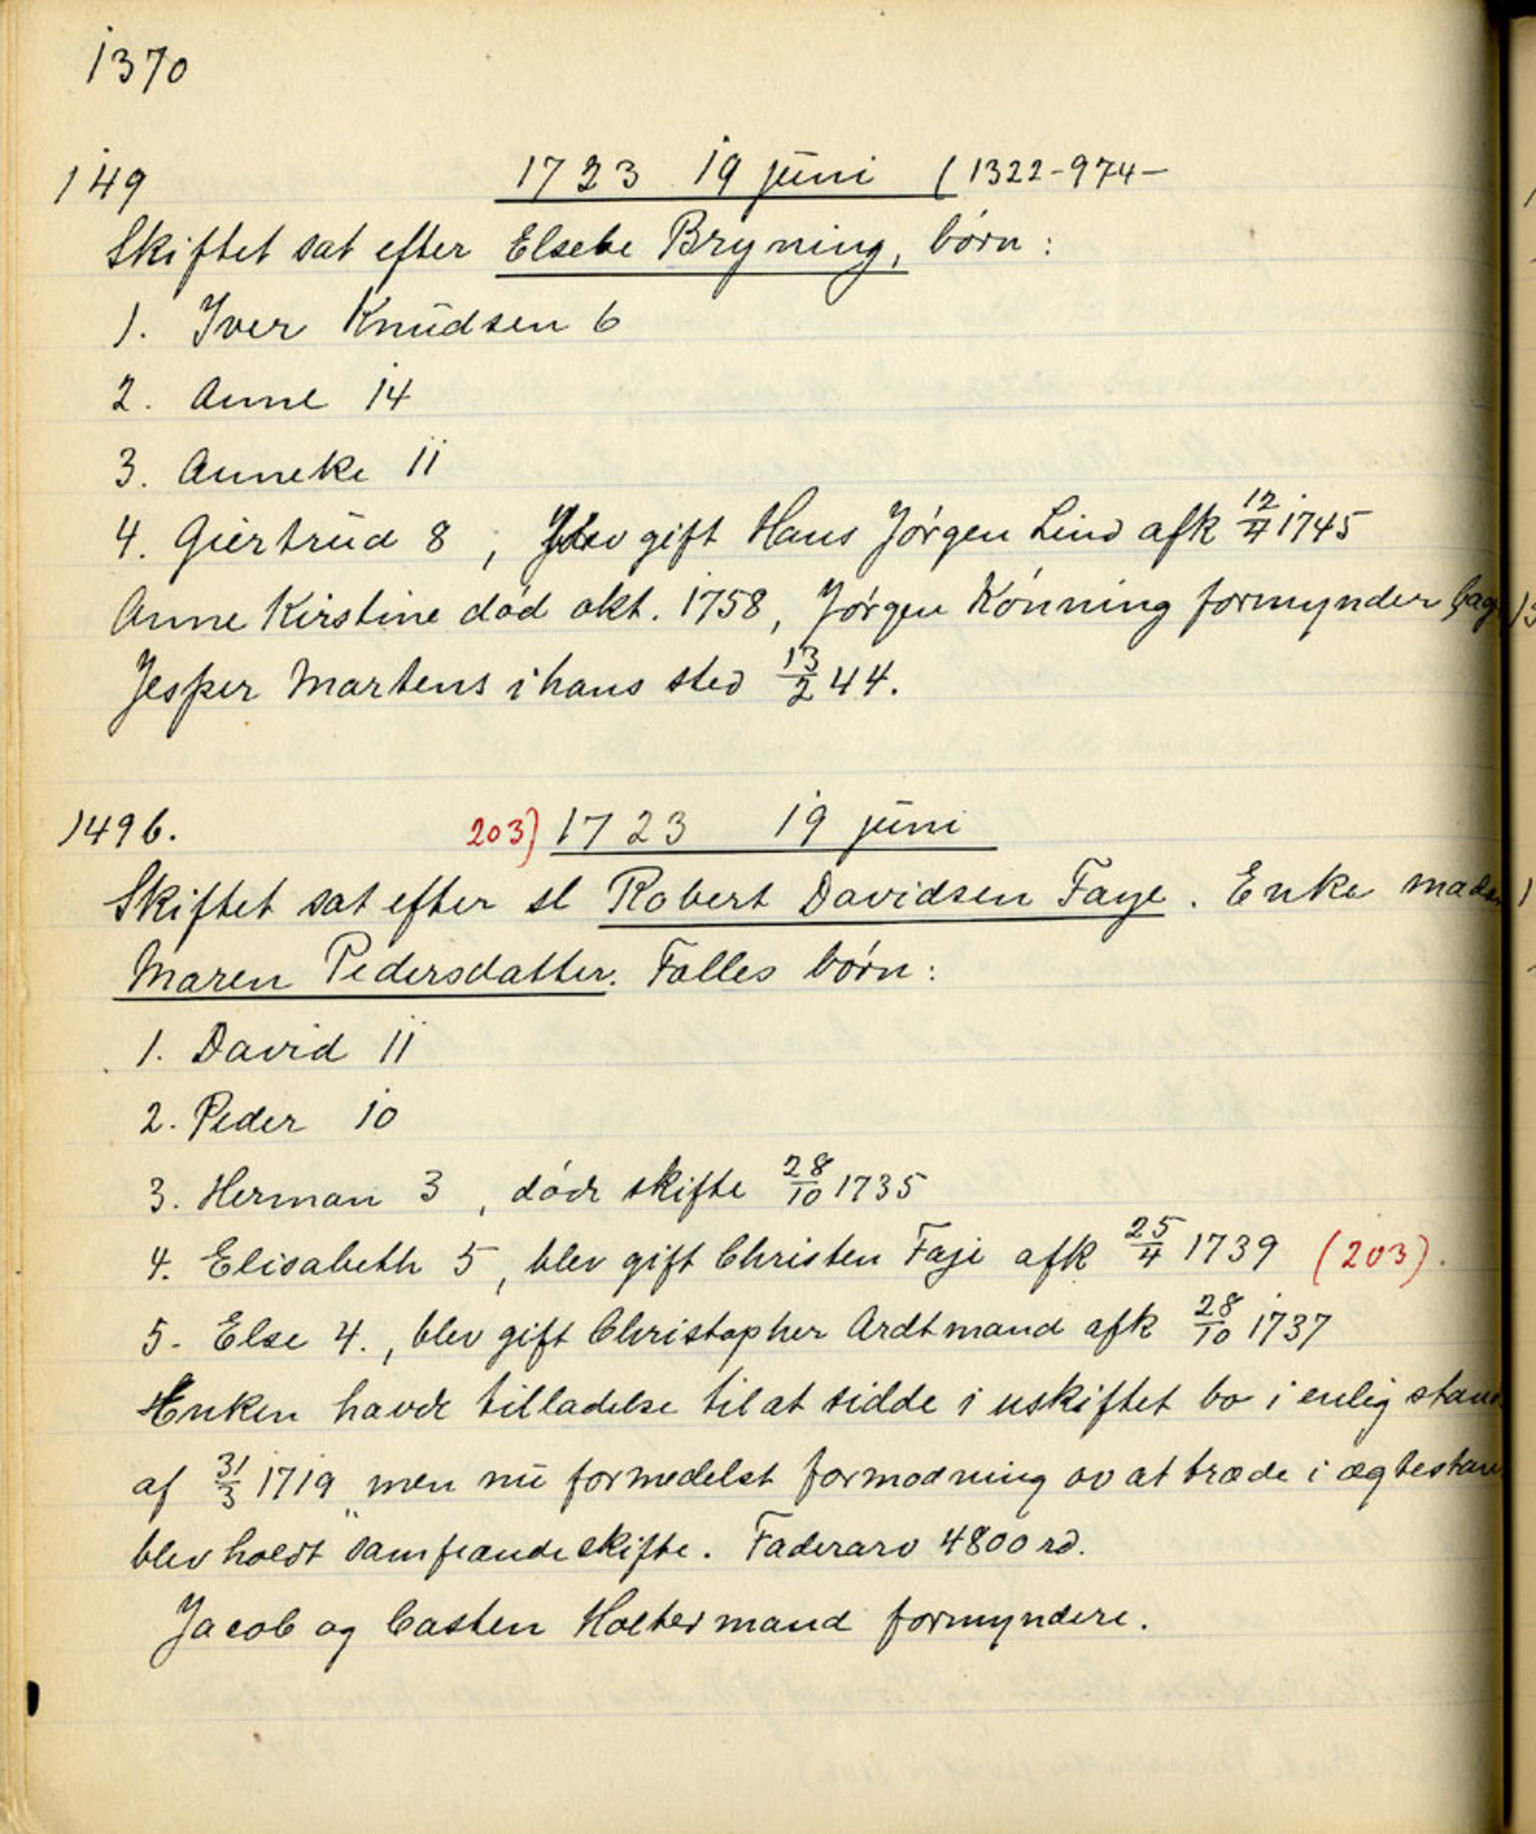 1370
149 1723 19 juni (1322-974-
Skiftet sat efter Elsebe Bryning, børn:
1. Iver Knudsen 6
2. Anne 14
3. Anneke 11
4. Giertrud 8, blev gift Hans Jørgen Lind afk 12/4 1745
Anne Kirstine død okt. 1758, Jørgen Kønning formynder
Jesper Martens i hans sted 13/2 44.
1496. 203) 1723 19 juni
Skiftet sat efter sl Robert Davidsen Faye. Enke
Maren Pedersdatter. Falles børn:
1. David 11
2. Peder 10
3. Herman 3, døde skifte 28/10 1735
4. Elisabeth 5, blev gift Christen Faje afk 25/4 1739 (203).
5. Else 4., blev gift Christopher Ardtmand afk 28/10 1737
Enken havde tilladelse til at sidde i uskiftet bo i enlig
af 31/3 1719 men nu formedelst formodning ov at træde i
blev holdt samfrændeskifte. Faderarv 4800 rd.
Jacob og Casten Holtermand formyndere.